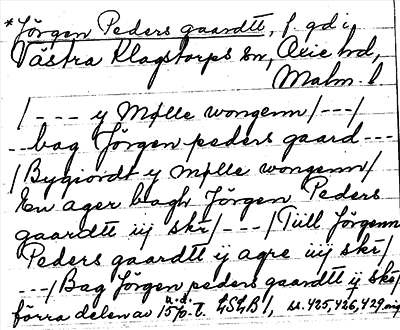 *Jörgen Peders gaardtt, f. gd i
Västra Klagstorps sn, Oxie hd,
Malm. l
/--- y Mølle wongenn/---/
--bag Jörgen peders gaard---
/Bygiordt y mølle wongenn/
En ager bagh Jörgen Peders
gaardtt iij ski/---/Tiill Jörgenn
Peders gaardtt ij agre iiij ski/
---/Bag Jörgen peders gaardtt ij ski/
förra delen av 15/0-t. LSLB 1, ss. 425, 426, 429